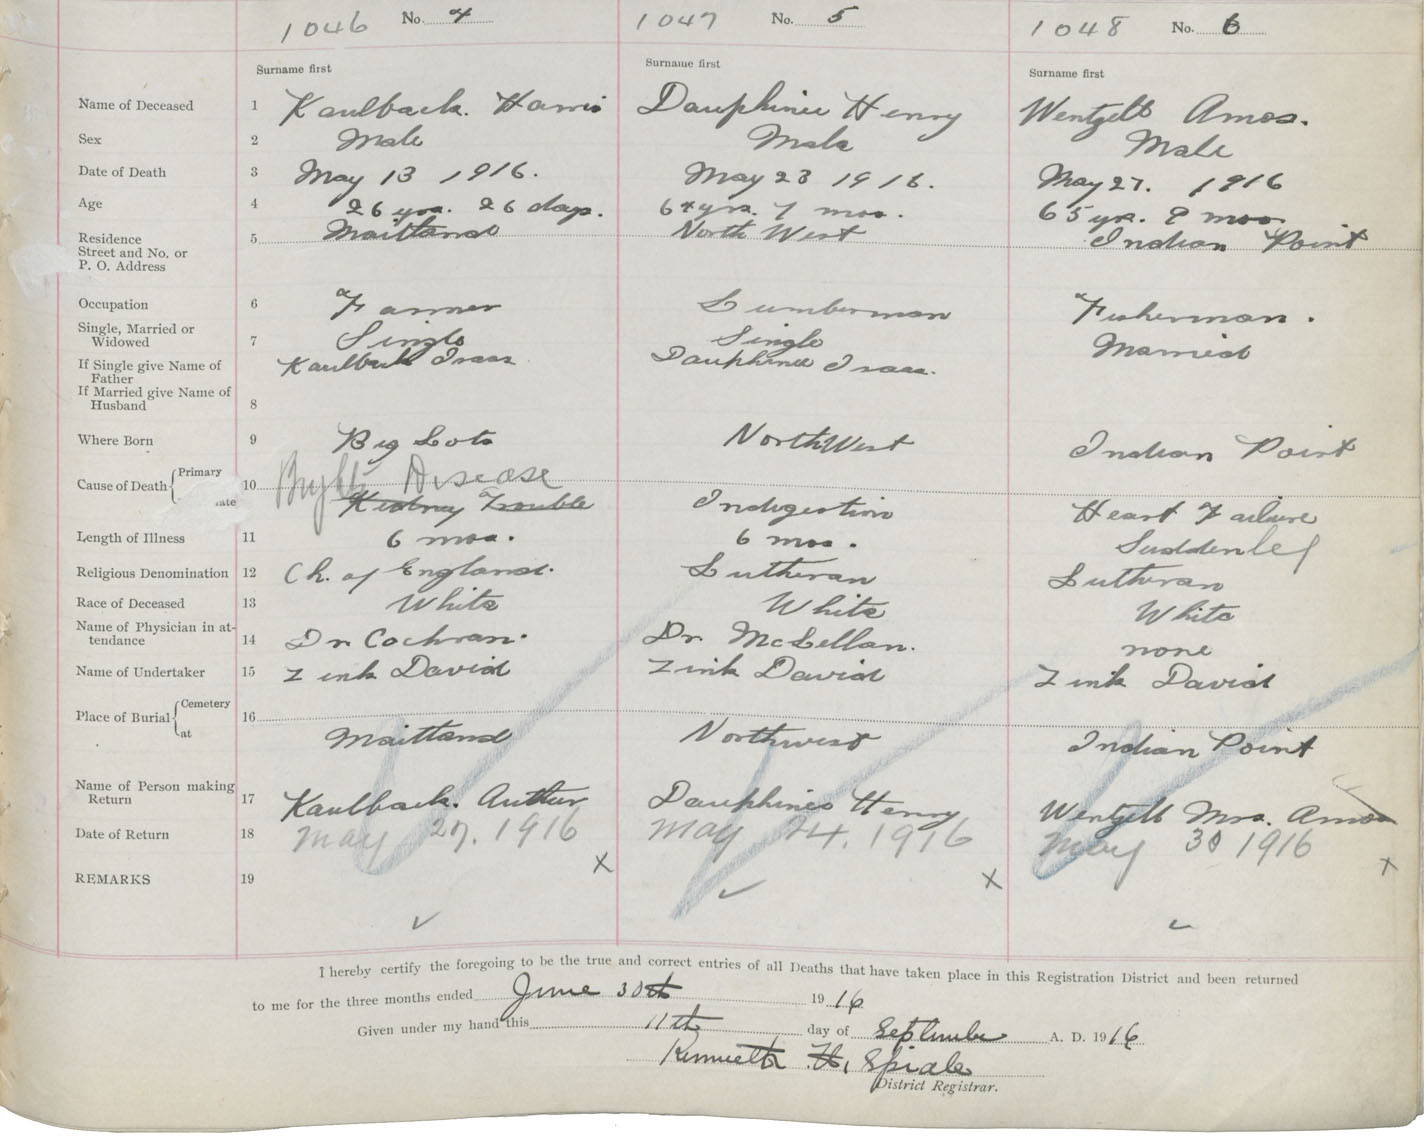 1046 No. 4 1047 No. 5 1048 No. 6
Surname first Surname first Surname first
Name of Deceased 1 Kaulback. Harris Dauphinee Henry Wentzell Amos.
Sex 2 Male Male Male
Date of Death 3 May 13 1916. May 23 1916. May 27. 1916
Age 4 26 yrs. 26 days. 64 yrs. 7 mos. 65 yrs. 8 mos.
Residence 5 Maitland North West Indian Point
Street and No. or
P. O. Address
Occupation 6 Farmer Lumberman Fisherman.
Single, Married or
Widowed 7 Single Single Married
If Single give Name of Kaulback Isaac Dauphinee Isaac.
Father
If Married give Name of
Husband 8
Where Born 9 Big Lots NorthWest Indian Point
Cause of Death Primary 10 Disease
ate Kidney Trouble Indigestion Heart Failure
Length of Illness 11 6 mos. 6 mos. Suddenley
Religious Denomination 12 Ch. of England. Lutheran Lutheran
Race of Deceased 13 White White White
Name of Physician in at-
tendance 14 Dr Cochran. Dr. McLellan. none
Name of Undertaker 15 Zink David Zink David Zink David
Place of Burial Cemetery 16
at Maitland Northwest Indian Point
Name of Person making
Return 17 Kaulback. Arthur Dauphinee Henry Wentzell Mrs. Amos
Date of Return 18 May 27. 1916 May 24. 1916 May 30 1916
REMARKS 19
I hereby certify the foregoing to be the true and correct entries of all Deaths that have taken place in this Registration District and been returned
to me for the three months ended June 30th 1916
Given under my hand this 11th day of September A. D. 1916
Kenneth H.
District Registrar.